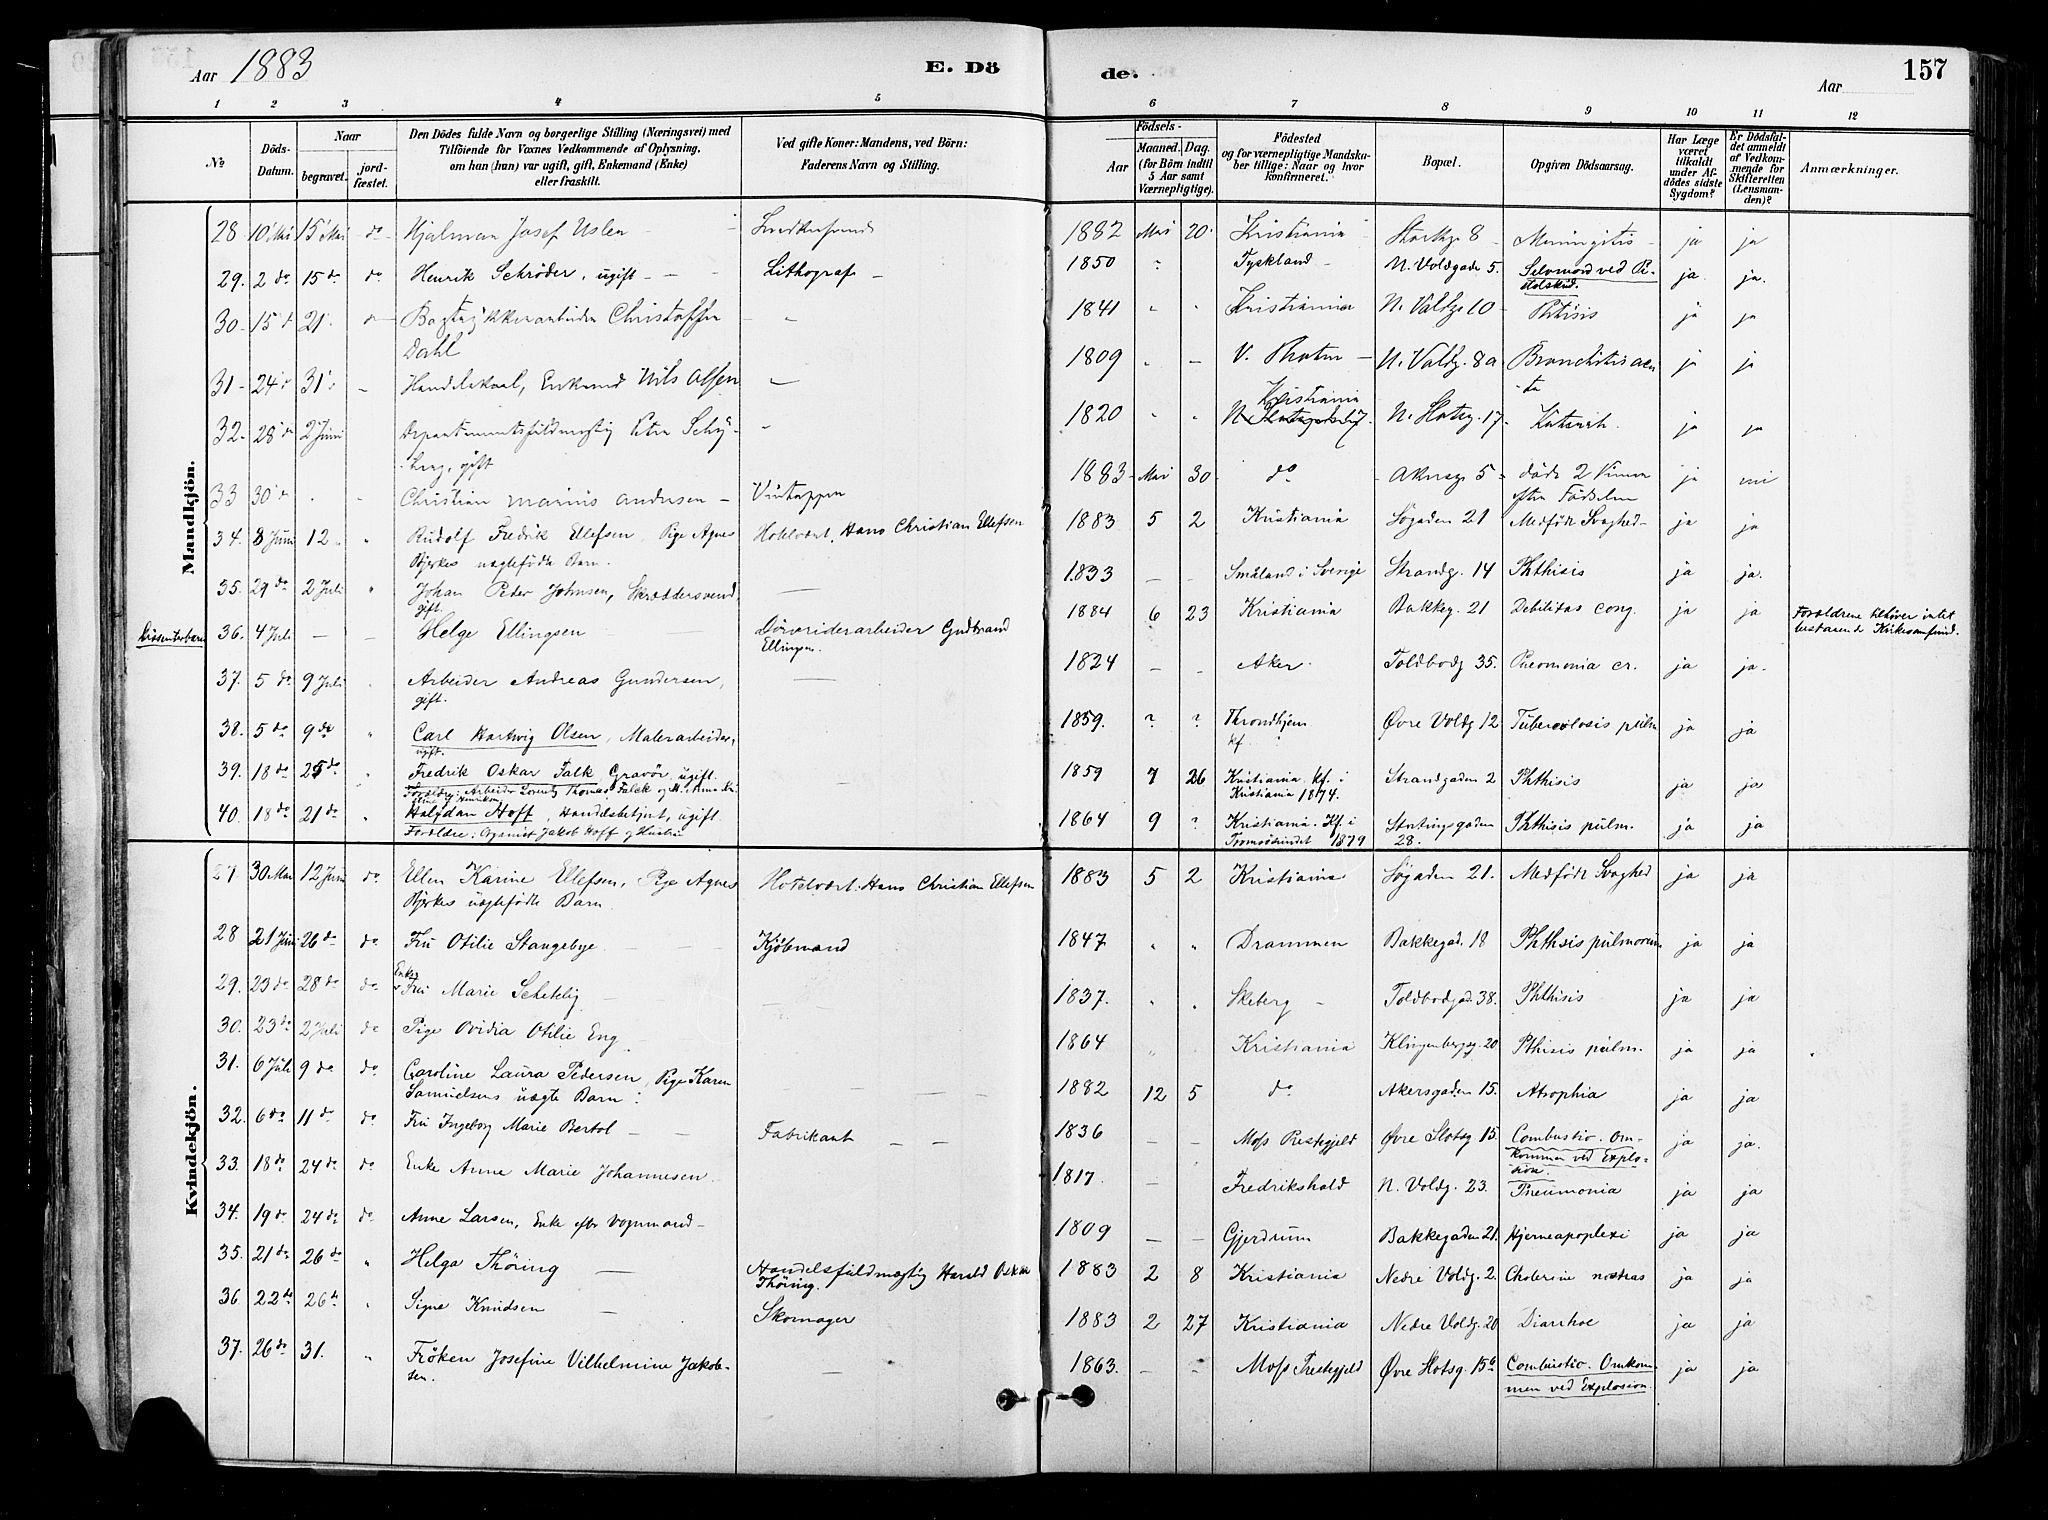 Aar 1883
E. Dö
de.
Aar
157
1 2 3 4 5 6 7 8 9 10 11 12
No
Döds-Datum.
Naar
begravet.
jordfæstet.
Den Dödes fulde Navn og borgerlige Stilling (Næringsvei) med
Tilföiende for Voxnes Vedkommende af Oplysning,
om han (hun) var ugift, gift, Enkemand (Enke)
eller fraskilt.
Ved gifte Koner: Mandens, ved Börn:
Faderens Navn og Stilling.
Födsels-
Aar
Maaned. Dag.
(for Börn indtil
5 Aar samt
Værnepligtige).
Födested
og for værnepligtige Mandskaber tillige: Naar og hvor
konfirmeret.
Bopæl.
Opgiven Dödsaarsag.
Har Læge
været
tilkaldt
under Afdödes sidste
Sygdom?
Er Dödsfaldet anmeldt
af Vedkommende for
Skifteretten
(Lensmanden)?
Anmærkninger.
Mandkjön.
28 10 Mai 15 Mai do Hjalmar Josef Uslen 1882 Mai 20 Kristiania Storthg 8 Meningitis ja ja
29. 2 do 15 do do Henrik Schrøder, ugift Lithograf 1850 Tyskland N. Voldgade 5. Selvmord ved Pistolskud. ja ja.
30 15 d 21 Christoffer Dahl 1841 Kristiania N. Voldg. 10 Phtisis ja ja
31 24 d 31 Enkemd Nils Olsen 1809 N. Voldg. 8a Bronchitis acuta ja ja
32. 28 d 2 Juni gift 1820 Kristiania N. Slotsg. 17 ja ja
33 30 d Christian Marius Andersen Vintapper 1883 Mai 30 do Akersg 5 døde 2 Timer efter Fødselen ja
34. 8 Juni 12 Rudolf Fredrik Ellefsen, Pige Agnes Bjerkes uægtefødte Barn. Hotelvært Hans Christian Ellefsen 1883 5 2 Kristiania Søgaden 21 Medfødt Svaghed ja ja
35. 29 do 2 Juli Johan Peder Johnsen, Skræddersvend, gift. 1833 Småland i Sverige Strandg. 14 Phthisis ja ja.
Dissenterbarn 36. 4 Juli Helge Ellingsen Gudbrand Ellingsen. 1884 6 23 Kristiania Bakkeg. 21 Debilitas cong. ja ja Forældrene tilhører intet bestaaende Kirkesamfund.
37. 5 do 9 Juli Arbeider Andreas Gundersen, gift. 1824 Aker. Toldbodg 35. Pneomonia cr. ja ja.
38. 5 do 9 do Carl Hartvig Olsen, Malerarbeider, ugift. 1859. ? ? Throndhjem kf. Øvre Voldg 12 Tuberculosis pulm ja ja
39. 18 do 25 do Fredrik Oskar Falk Gravør, ugift. 1859 7 26 Kristiania. kf. i Kristiania 1874. Strandgaden 2 Phthisis ja ja
Forældre: Arbeider Thomas Falck og
40. 18 do 21 do Halfdan Hoff, Handelsbetjent, ugift. 1864 9 ? Kristiania. Kf. i Tromsøsundet 1879 Stortingsgaden 28. Phthisis pulm. ja ja
Forældre: Organist Jakob Hoff og Hustru
Kvindekjön.
27. 30 Mai 12 Juni do Ellen Karine Ellefsen, Pige Agnes Bjerkes uægtefødte Barn. Hotelvært: Hans Christian Ellefsen 1883 5 2 Kristiania Søgaden 21. Medfødt Svaghed ja ja
28 21 Juni 26 do do Fru Otilie Stangebye Kjøbmand 1847 Drammen Bakkegad. 18 Phthisis pulmorum ja ja
29. 23 do 28 do do Enke Fru Marie Schetelig 1837. Skeberg Toldbodgad. 38. Phthisis ja ja
30. 23 do 2 Juli do Pige Ovidia Otilie Eng 1864 Kristiania Klingenbergg. 20 Phthisis pulm. ja ja
31. 6 Juli 9 do do Caroline Laura Pedersen, Pige Karen Samuelsens uægte Barn 1882 12 5 do Akersgaden 15. Atrophia ja ja
32. 6 do 11 do do Fru Ingeborg Marie Bertol Fabrikant 1836 Moss Prestegjeld Øvre Slotsg. 15. Combustio. Omkommen ved Explosion. ja ja.
33. 18 do 24 do do Enke Anne Marie Johannesen 1817 Fredrikshald N. Voldg. 23. Pneumonia ja ja
34. 19 do 24 do do Anne Larsen, Enke efter Vognmand 1809 Gjerdrum Bakkegaden 21. Hjerneapoplexi ja ja
35. 21 do 26 do Helga Thøring Handelsfuldmægtig Harald Oskar Thøring. 1883 2 8 Kristiania Nedre Voldg. 2. Cholerine nostras ja ja
36. 22 do 26 do Signe Knudsen Skomager 1883 2 27 Kristiania Nedre Voldg. 20 Diarrhoe ja ja
37. 26 do 31. Frøken Josefine Vilhelmine Jakobsen. 1863. Moss Prestegjeld Øvre Slotsg. 15b Combustio. Omkommen ved Explosion. ja ja